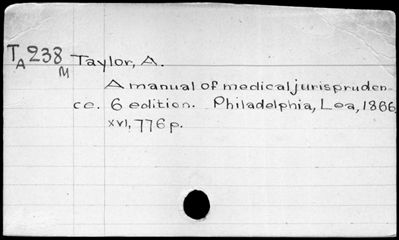 TA238 Taylor, A.
M
A manual of medical jurispruden
ce. 6 edition. Philadelphia, Lea, 1866,
xvi, 776 p.